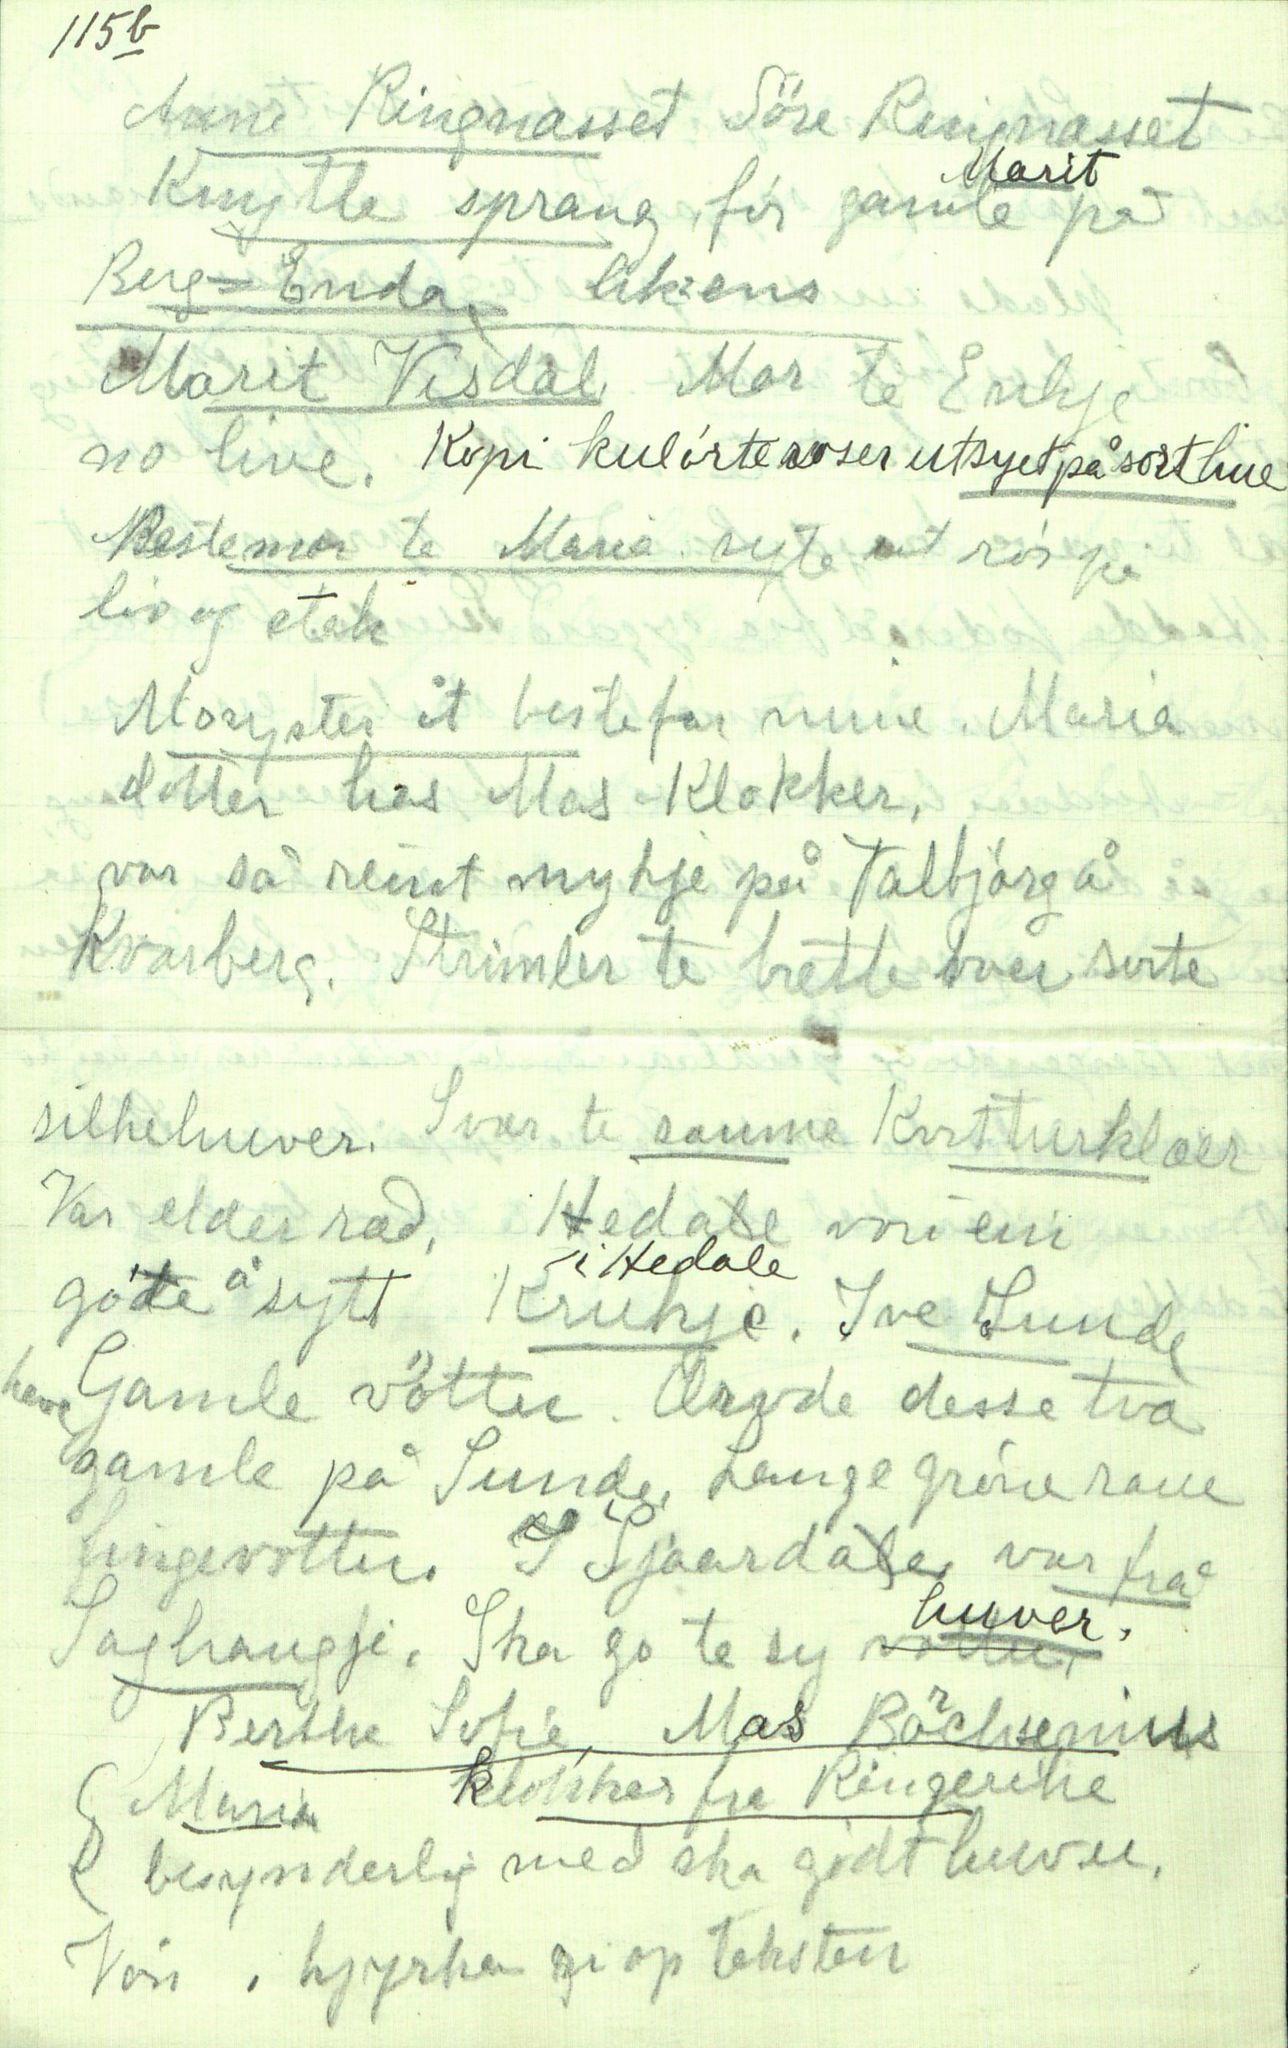 115b
Anne Ringnasset Söre Ringnasset
Marit
Knytte sprang, för gamle på
Berg=Enda, likens
Marit Visdal. Mor te
no live. Kopi kulörte roser utsyet på sort lue
Bestemor te Maria syte ut rös på
liv og stak
Moryster åt bestefar mine. Maria
dotter has Mas Klokker,
var så reint mykje på Talbjörg å
Kvarberg. Strimler te brette over sorte
silkeluver. Svær te saume
Var elder rad, Hedale vori ein
i Hedale
göde å sytt Krukje. Ive Sunde
have Gamle vötter. Örvde desse två
gamle på Sunde. Lange gröne raue
fingevotter. I Sjaardale, var frå
luver.
Saghaugje. Ska go te sy votter,
Berthe Sofie, Mas
Maria klokker fra Ringerike
besynderlig med ska gödt luver.
Vön . kyrka gi op teksten